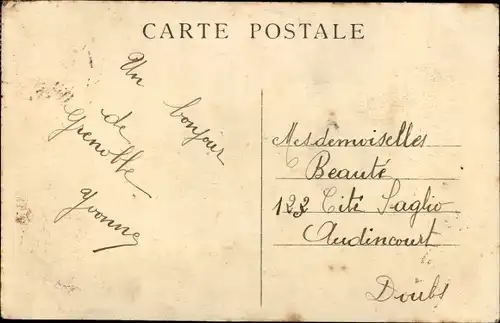 CARTE POSTALE
Un bonjour
de
Grenoble
Yvonne
Mesdemoiselles
Beauté
122 Cité Saglio
Audincourt
Doubs